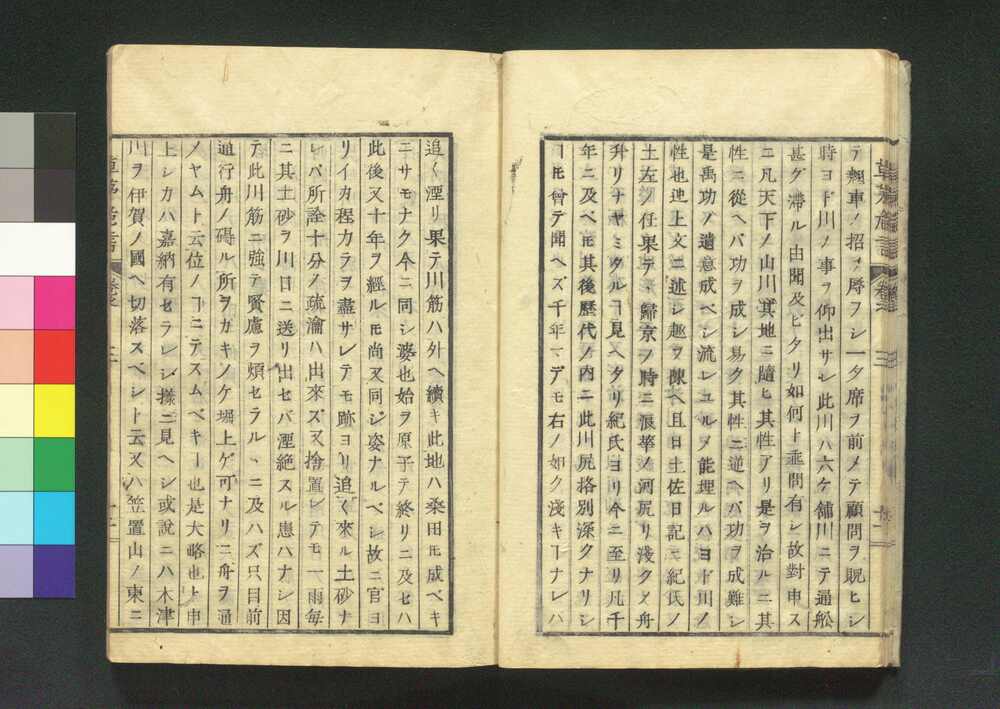 テ翹車ノ招ノ辱ヲシ一夕席ヲ前メテ顧問ヲ貺ヒシ
時ヨド川ノ事ヲ仰出サレ此川ハ六ケ舗川ニテ通舩
甚ダ滞ル由聞及ビタリ如何ト垂問有シ故對申ス
ニ凡天下ノ山川其地ニ隨ヒ其性アリ是ヲ治ルニ其
性ニ從ヘバ功ヲ成シ易ク其性ニ逆ヘバ功ヲ成難シ
是禹功ノ遺意成ベシ流レユルメ能埋ルハヨド川ノ
性也迚上文ニ述シ趣ヲ陳ヘ且曰土佐日記ニ紀氏ノ
土左ノ任果テ歸京ノ時ニ浪華ノ河尻リ淺クメ舟
升リナヤミタルヿ見ヘタリ紀氏ヨリ今ニ至リ凡千
年ニ及ベㇺ其後歴代ノ内ニ此川尻挌別深クナリシ
ヿㇺ曾テ聞ヘズ千年マデモ右ノ如ク淺キヿナレハ
追く湮リ果テ川筋ハ外ヘ續キ此地ハ桒田ㇺ成ベキ
ニサモナク今ニ同シ婆也始ヲ原子テ終リニ及セハ
此後又十年ヲ經ルㇺ尚又同ジ姿ナルベシ故ニ官ヨ
リイカ程力ラヲ盡サレテモ跡ヨリ追く來ル土砂ナ
レバ所詮十分ノ疏瀹ハ出來ズ又捨置レテモ一雨毎
ニ其土砂ヲ川口ニ送リ出セバ湮絶スル患ハナシ因
テ此川筋ニ強テ賢慮ヲ煩セラルヽニ及ハズ只目前
通行舟ノ碍ル所ヲカキノケ堀上ゲ可ナリニ舟ヲ通
ノヤムト云位ノヿニテスムベキヿ也是大略也ト申
上シカハ嘉納有セラレシ樣ニ見ヘシ或說ニハ木津
川ヲ伊賀ノ國ヘ切落スベシト云又ハ笠置山ノ東ニ